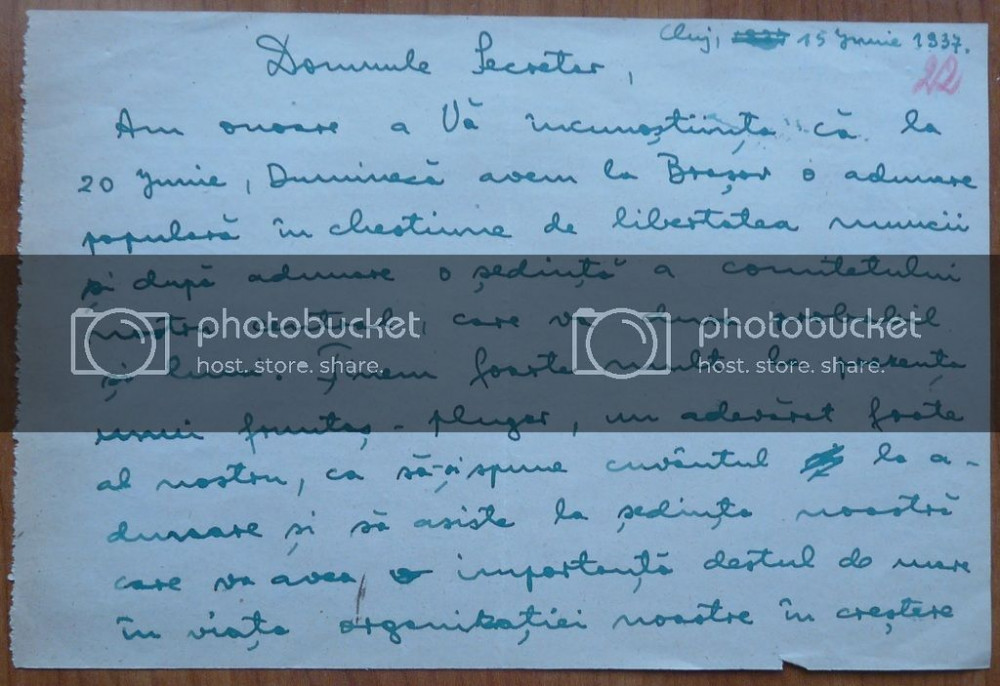 Cluj, 15 Junie 1937.
22
Domnule Secretar,
Am onoare a Vă încunoștiința că la
20 Junie, Duminecă avem la Brașov o adunare
populară în chestiune de libertatea muncii
și după adunare o ședință a comitetului
nostru central, care va dura probabil
și luni. Ținem foarte mult la prezența
unui fruntaș-plugar, un adevărat frate
al nostru, ca să-și spune cuvântul la a-
dunare și să asiste la ședința noastră
care va avea o importanță destul de mare
în viața organizației noastre în creștere
photobucket
host. store. share.
photobucket
host. store. share.